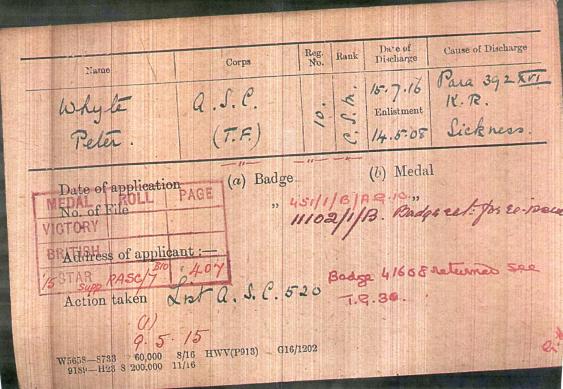 Name Corps Reg. No. Rank Date of Discharge Cause of Discharge
Whyte A.S.C. 10. C.S.M. 15.7.16 Para 392 XVI
Enlistment K.R.
Peter. (T.F.) 14.5.08 Sickness.
Date of application (a) Badge (b) Medal
MEDAL ROLL PAGE
No. of File " 451/1/B/ "
11102/1/B. Badge ret. for re-issue
VICTORY
BRITISH
Address of applicant :—
'15 STAR supp RASC/7 B10 407
Badge 41608 returned see
T.G. 30.
Action taken List A.S.C. 520
(1)
9.5.15
W5658—8733 60,000 8/16 HWV(P913) G16/1202
9189—H23 8 200,000 11/16